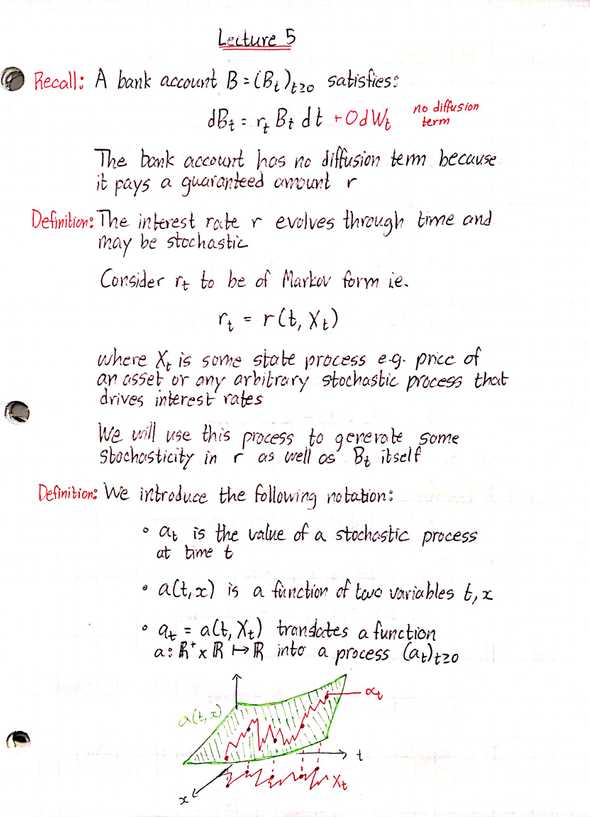 Lecture 5
Recall: A bank account B = (Bₜ)ₜ≥₀ satisfies:
dBₜ = rₜ Bₜ dt + 0dWₜ no diffusion
term
The bank account has no diffusion term because
it pays a guaranteed amount r
Definition: The interest rate r evolves through time and
may be stochastic
Consider rₜ to be of Markov form ie.
rₜ = r(t, Xₜ)
where Xₜ is some state process e.g. price of
an asset or any arbitrary stochastic process that
drives interest rates
We will use this process to generate some
stochasticity in r as well as Bₜ itself
Definition: We introduce the following notation:
• aₜ is the value of a stochastic process
at time t
• a(t,x) is a function of two variables t, x
• aₜ = a(t, Xₜ) translates a function
a: ℝ⁺ x ℝ ↦ ℝ into a process (aₜ)ₜ≥₀
aₜ
a(t,x)
t
Xₜ
x